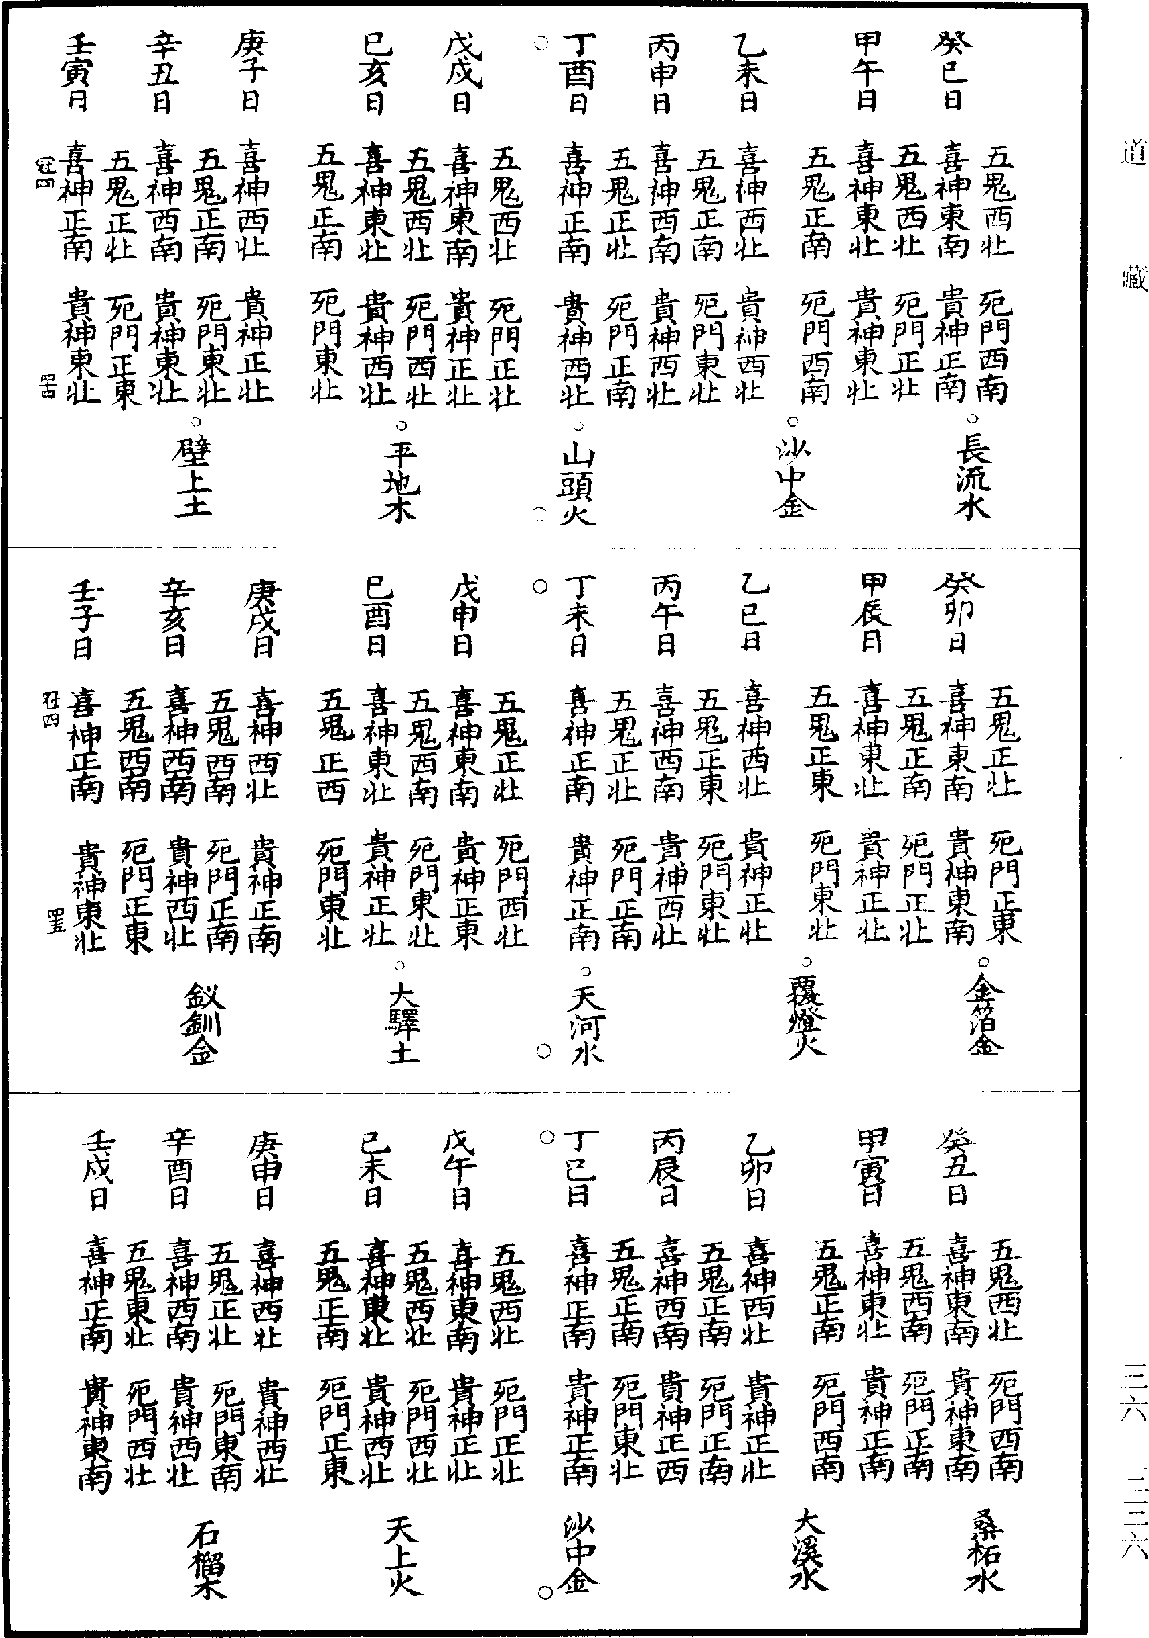 五鬼西北 死門西南
○長流水
癸巳日 喜神東南 貴神正南
五鬼西北 死門正北
甲午日 喜神東北 貴神東北
五鬼正南 死門西南
○沙中金
乙未日 喜神西北 貴神西北
五鬼正南 死門東北
丙申日 喜神西南 貴神西北
五鬼正北 死門正南
丁酉日 喜神正南 貴神西北 ○山頭火
五鬼西北 死門正北
戊戌日 喜神東南 貴神正北
五鬼西北 死門西北
○平地木
己亥日 喜神東北 貴神西北
五鬼正南 死門東北
庚子日 喜神西北 貴神正北
五鬼正南 死門東北
○壁上土
辛丑日 喜神西南 貴神東北
五鬼正北 死門正東
壬寅日 喜神正南 貴神東北
五鬼正北 死門正東
○金箔金
癸卯日 喜神東南 貴神東南
五鬼正南 死門正北
甲辰日 喜神東北 貴神正北
五鬼正東 死門東北
○覆燈火
乙巳日 喜神西北 貴神正北
五鬼正東 死門東北
丙午日 喜神西南 貴神西北
五鬼正北 死門正南
丁未日 喜神正南 貴神正南 ○天河水
五鬼正北 死門西北
戊申日 喜神東南 貴神正東
五鬼西南 死門東北
○大驛土
己酉日 喜神東北 貴神正北
五鬼正西 死門東北
庚戌日 喜神西北 貴神正南
五鬼西南 死門正南
釵釧金
辛亥日 喜神西南 貴神西北
五鬼西南 死門正東
壬子日 喜神正南 貴神東北
五鬼西北 死門西南
桑柘水
癸丑日 喜神東南 貴神東南
五鬼西南 死門正南
甲寅日 喜神東北 貴神正南
五鬼正南 死門西南
大溪水
乙卯日 喜神西北 貴神正北
五鬼正南 死門正南
丙辰日 喜神西南 貴神正西
五鬼正南 死門東北
丁巳日 喜神正南 貴神正南 沙中金
五鬼西北 死門正北
戊午日 喜神東南 貴神正北
五鬼西北 死門西北
天上火
己未日 喜神東北 貴神西北
五鬼正南 死門正東
庚申日 喜神西北 貴神西北
五鬼正北 死門東南
石榴木
辛酉日 喜神西南 貴神西北
五鬼東北 死門西北
壬戌日 喜神正南 貴神東南
道藏
三六 三三六